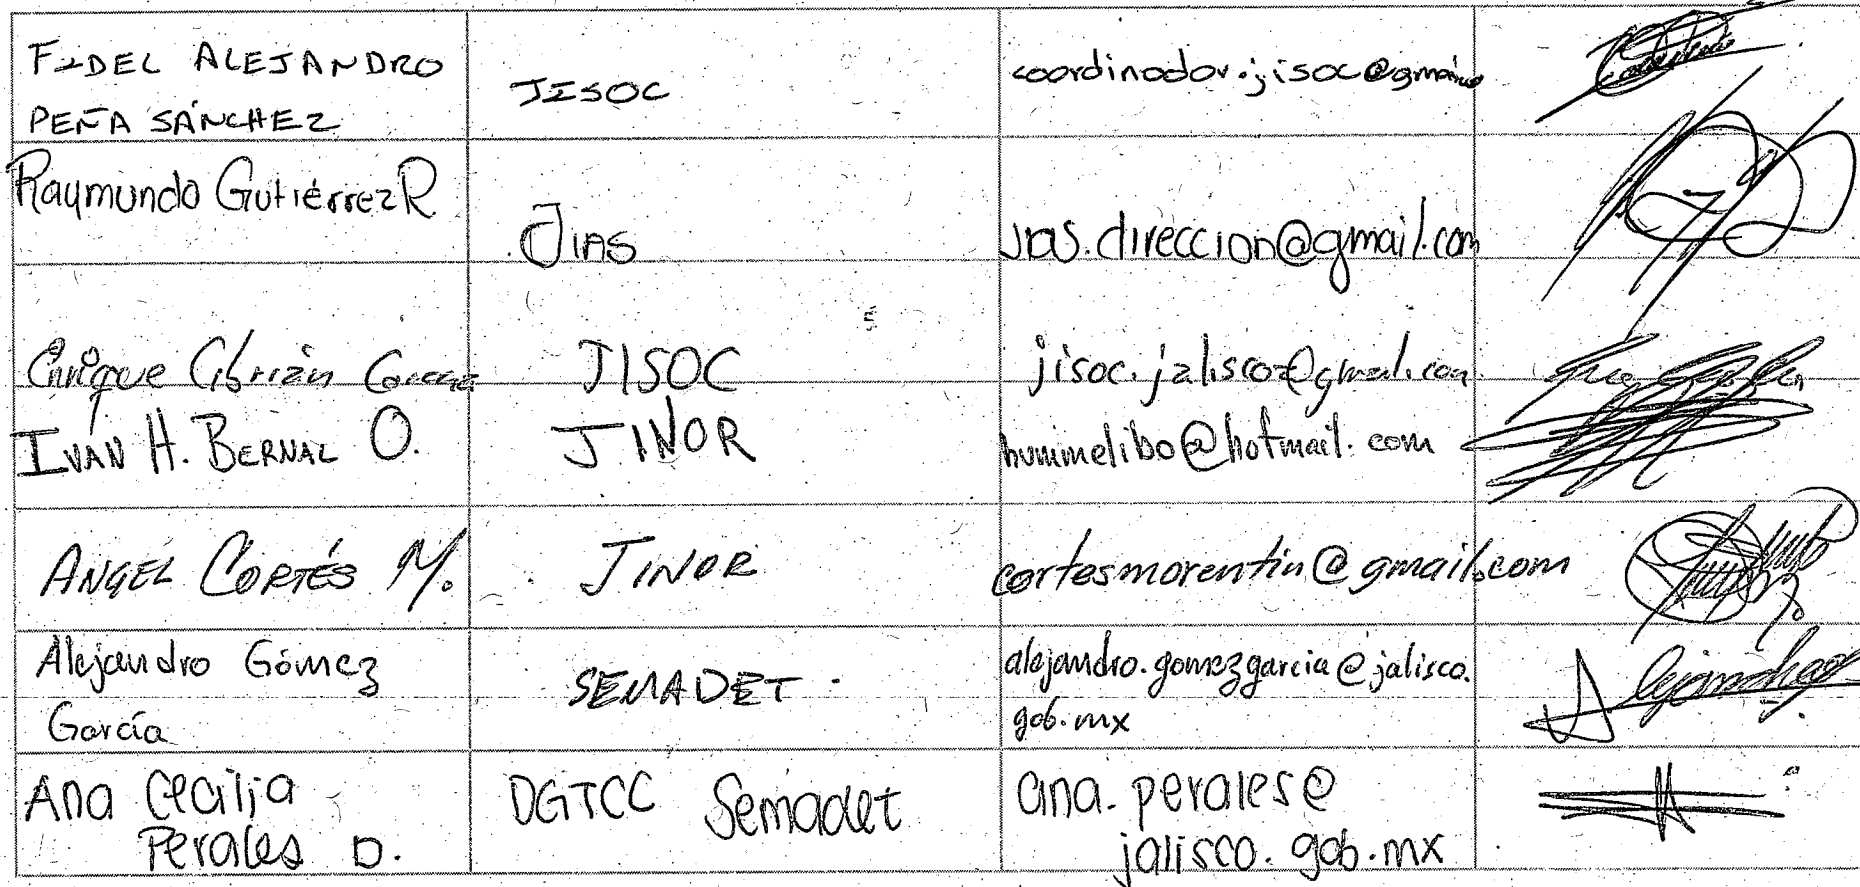 FIDEL ALEJANDRO
PEÑA SÁNCHEZ
JISOC
coordinador.jisoc@gmail.co
Raymundo Gutiérrez R
JIAS
jias.direccion@gmail.com
Enrique Cibrián
JISOC
jisoc.jalisco@gmail.com
IVAN H. BERNAL O.
JINOR
hummelibo@hotmail.com
ANGEL CORTÉS M.
JINOR
cortesmorentin@gmail.com
Alejandro Gómez
García
SEMADET
alejandro.gomezgarcia@jalisco.
gob.mx
Ana Cecilia
Perales D.
DGTCC Semadet
ana.perales@
jalisco.gob.mx